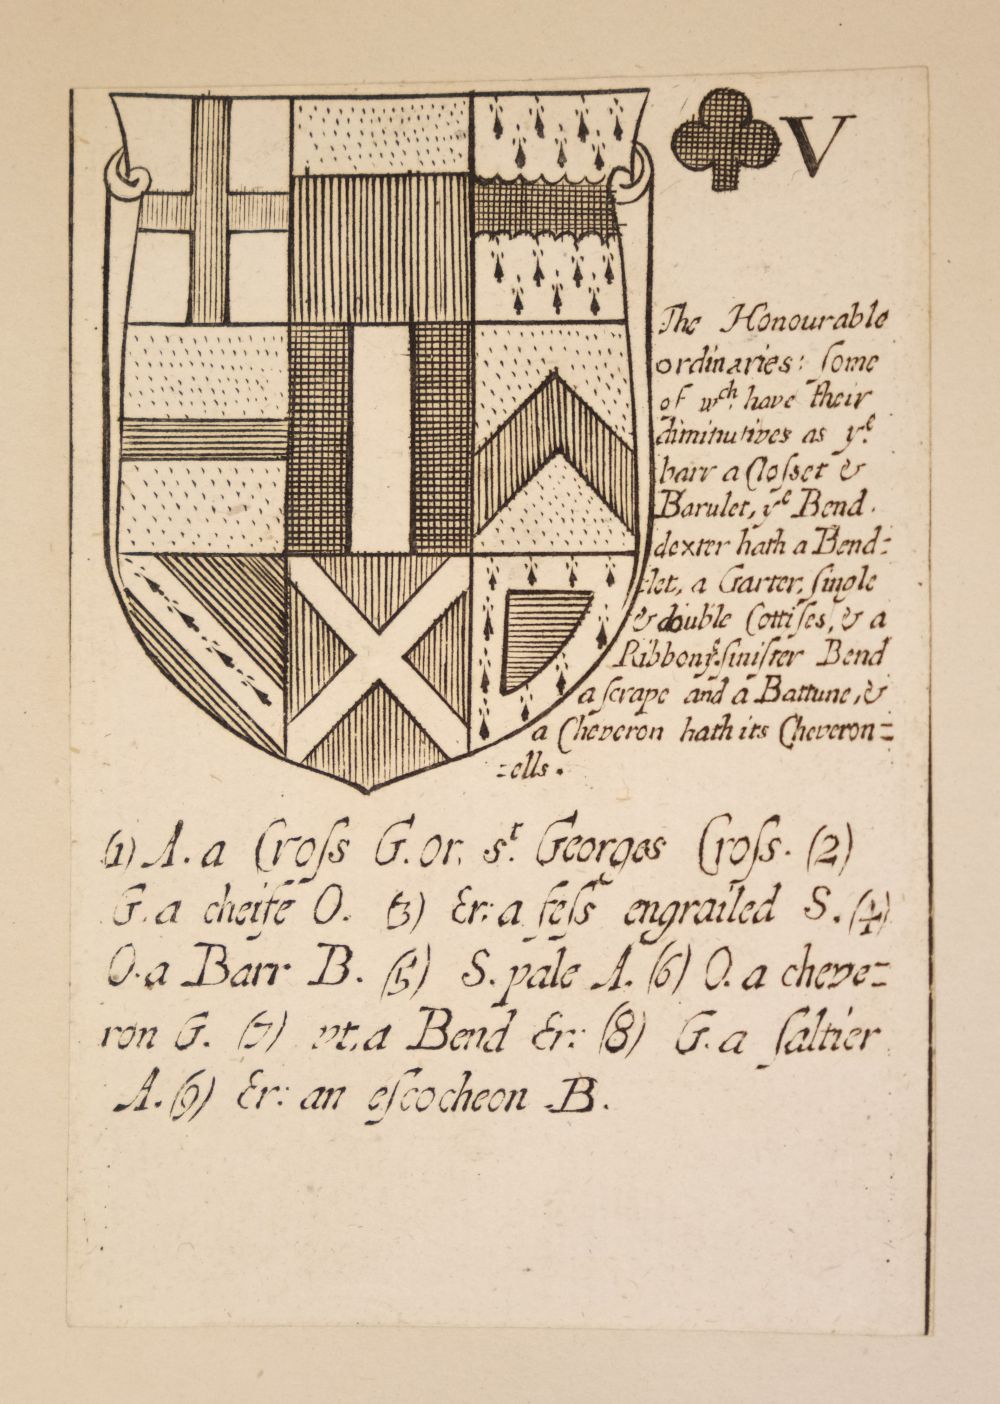 V
The Honourable
ordinaries: ſome
of wch. have their
diminutives as ye.
barr a Cloſset &
Barulet, ye Bend.
dexter hath a Bend:
:let, a Garter, ſingle
& double Cottiſes, & a
Ribbon, ye. ſiniſter Bend
a ſcrape and a Battune, &
a Cheveron hath its Cheveron=
:ells.
(1) A. a Croſs G. or. sr. Georges Croſs. (2)
G. a cheife O. (3) Er: a feſs engrailed S. (4)
O. a Barr B. (5) S. pale A. (6) O. a cheve=
ron G. (7) vt. a Bend Er: (8) G. a ſaltier
A. (9) Er: an eſcocheon B.